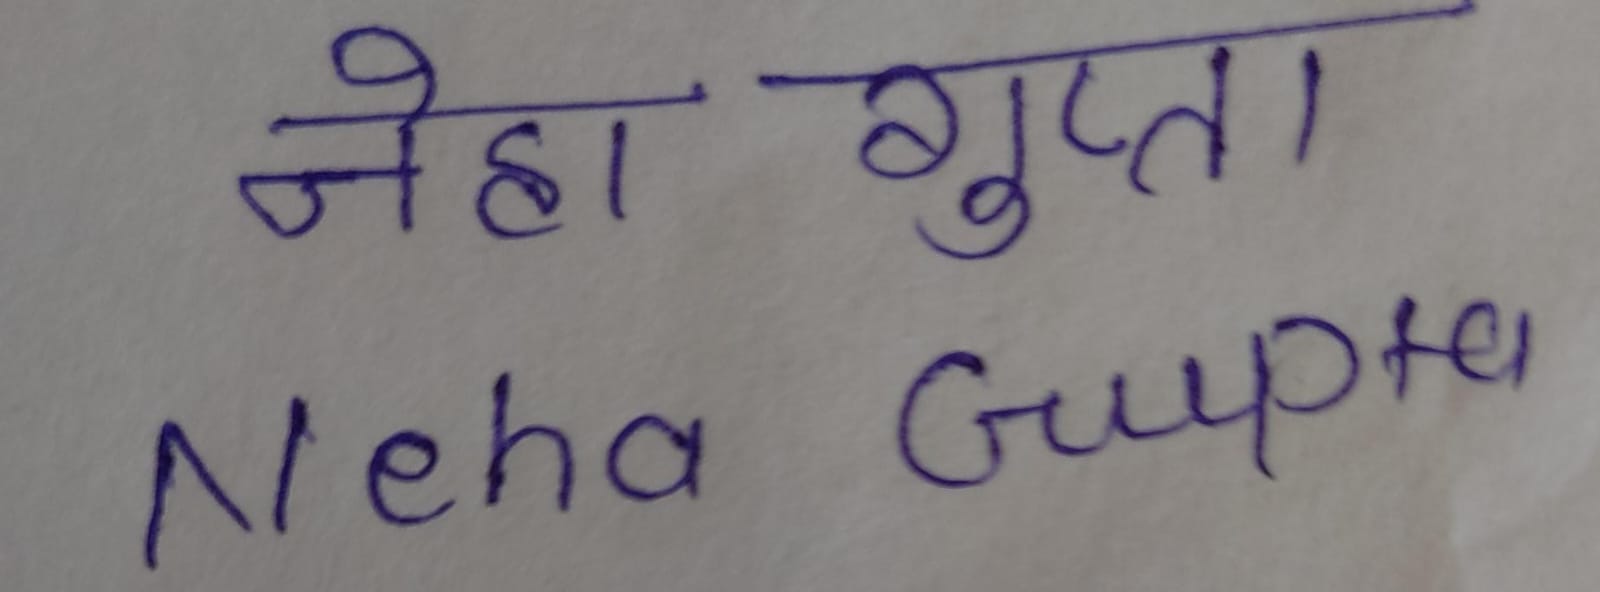 नेहा गुप्ता
Neha Gupta